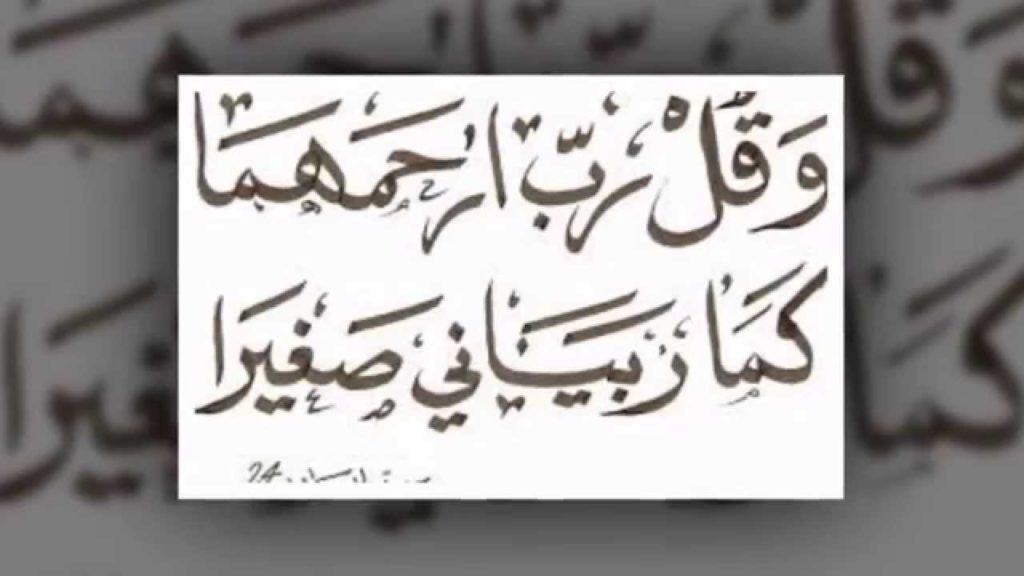 وَقُلْ رَبِّ ارْحَمْهُمَا
كَمَا رَبَّيَانِي صَغِيرًا
24